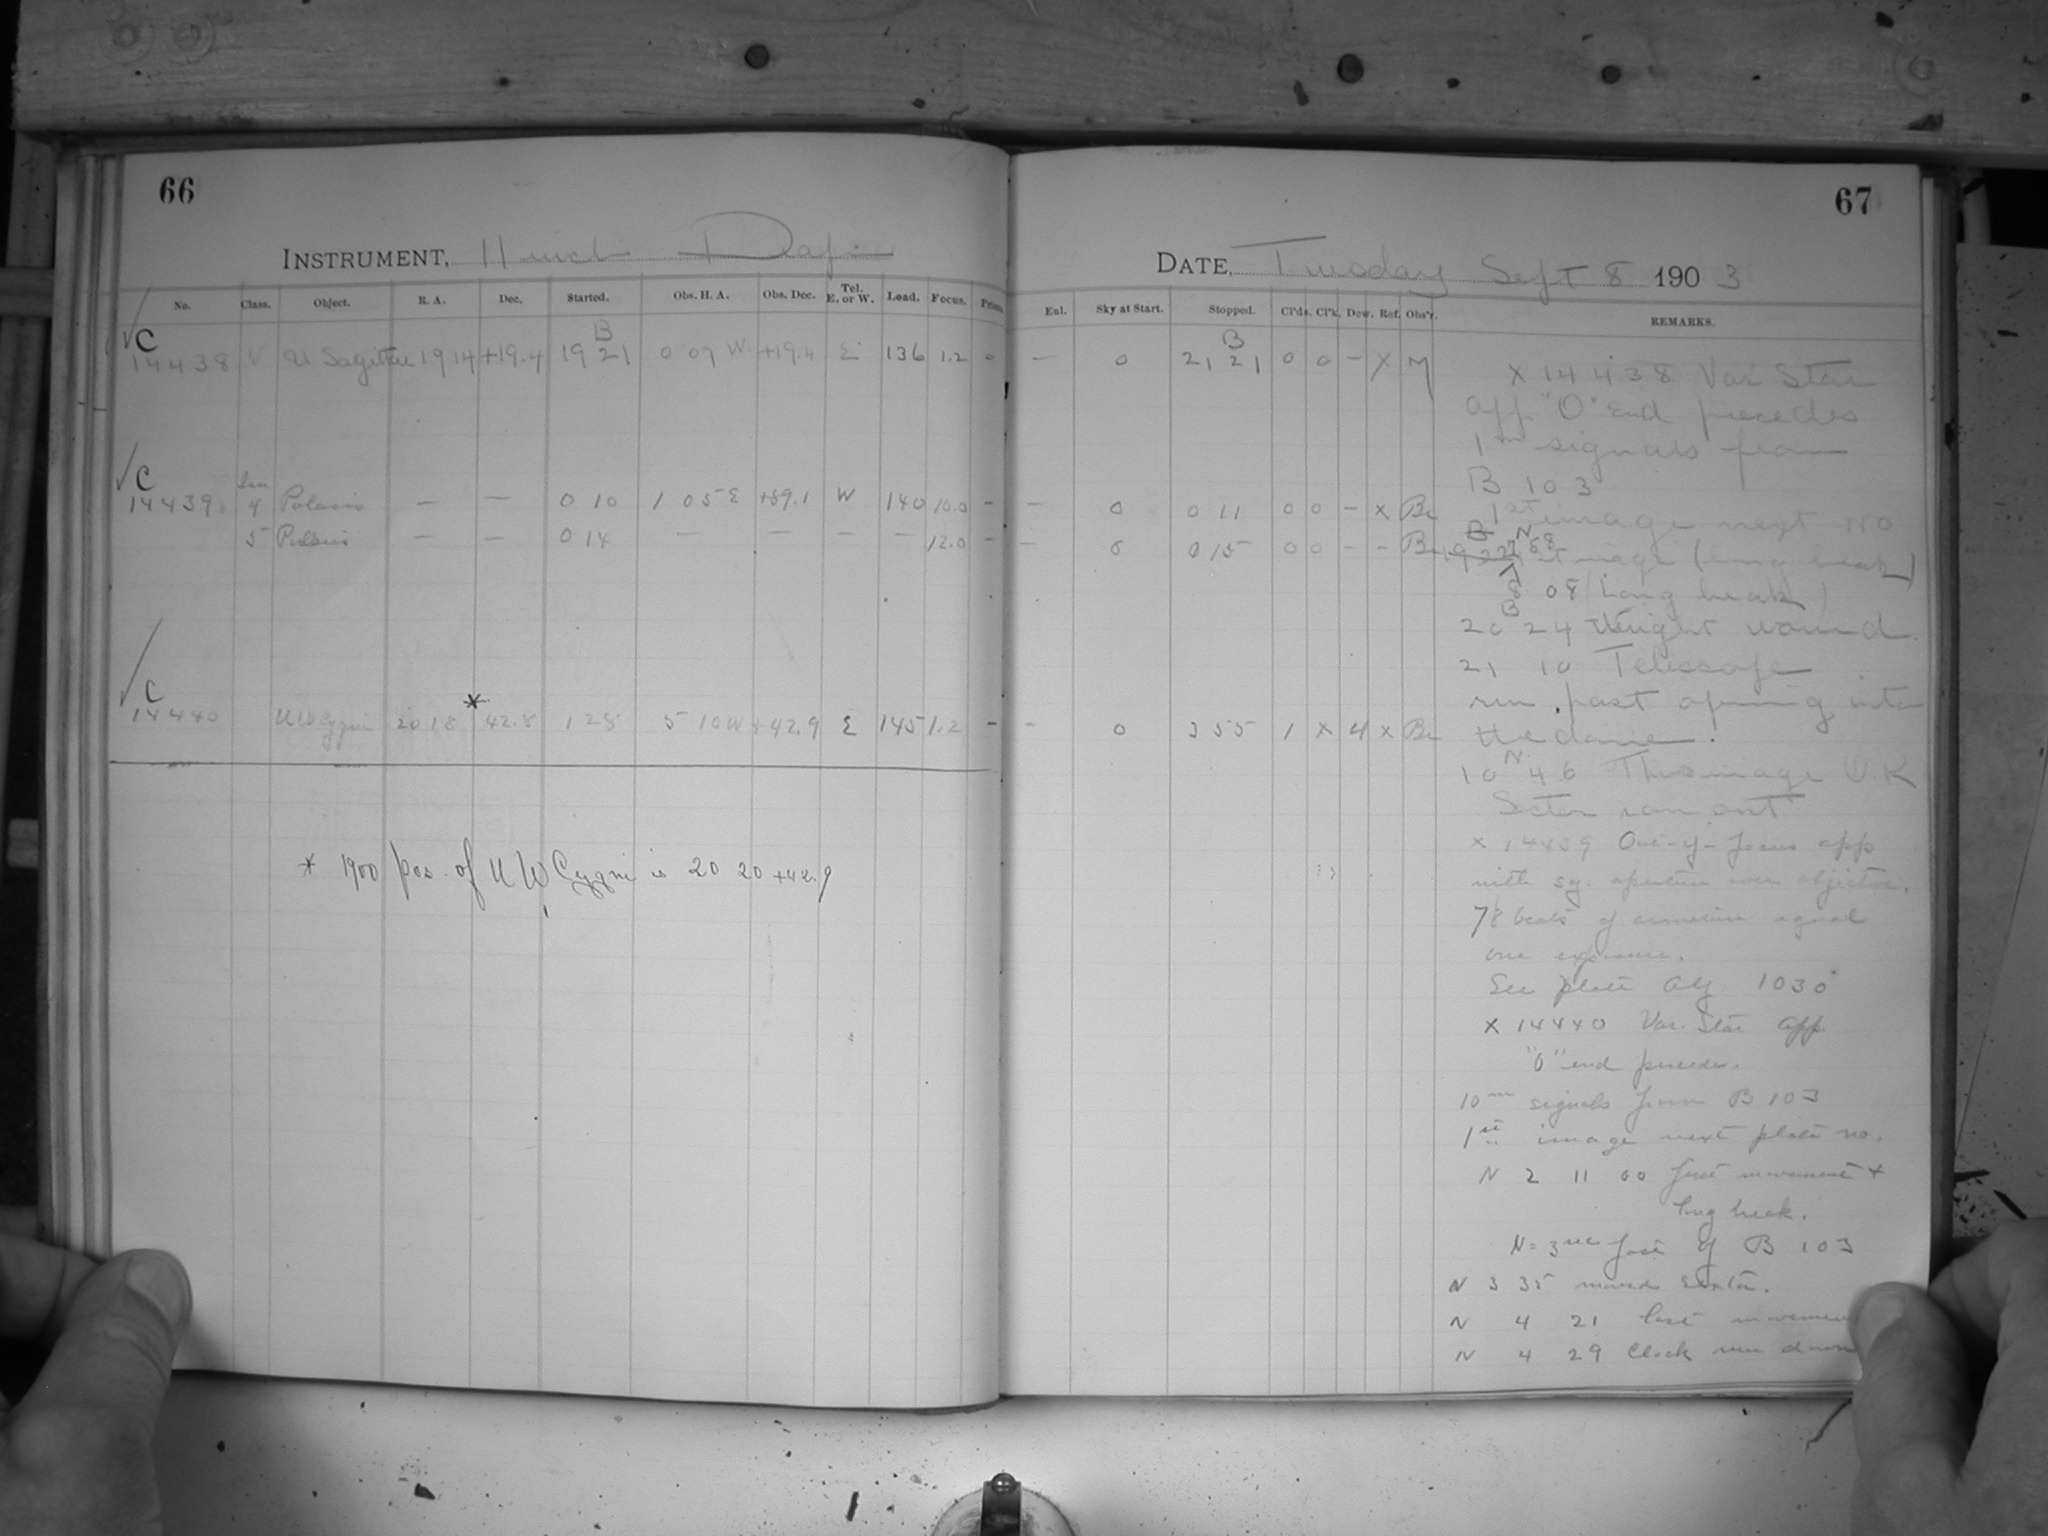 66
INSTRUMENT, 11 inch Draper
No. Class. Object. R. A. Dec. Started. Obs. H. A. Obs. Dec. Tel. E. or W. Load. Focus. Prisms
C
B
14438 V U Sagittae 19 14 +19.4 19 21 0 07 W +19.4 E 136 1.2 0
C
14439 4 Polaris — — 0 10 1 05 E +89.1 W 140 10.0 -
5 Polaris — — 0 14 — — — — 12.0 -
C
*
14440 UW Cygni 20 18 42.8 1 28 5 10 W +42.9 E 145 1.2 -
* 1900 pos. of U W Cygni is 20 20 +42.9
67
DATE, Tuesday Sept 8 1903
Enl. Sky at Start. Stopped. Cl'ds. Cl'k. Dew. Ref. Obs'r. REMARKS.
B
— 0 21 21 0 0 — X M
— 0 0 11 0 0 — X Br
— 0 0 15 0 0 - - Br
— 0 3 55 1 X 4 X Br
X 14438 Var Star
app. "O" End precedes
1m signals from
B 103
1st image next No
1st image (long break)
8 08 (Long break)
B
20 24 Weight wound
21 10 Telescope
run past opening into
the dome.
N
10 46 This image O.K
Sector ran out
X 14439 Out-of-focus app
with sq. aperture over objective.
78 beats of armature equal
one exposure.
See plate 1030
X 14440 Var. Star app.
"O" end precedes.
10m signals from B 103
1st image next plate no.
N 2 11 00 first movement +
long break.
N = 3 sec fast of B 103
N 3 35 moved sector.
N 4 21 last movement
N 4 29 Clock run down